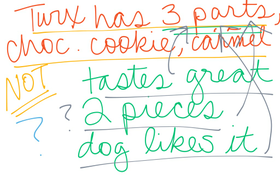 Twix has 3 parts
choc. cookie, carmel
NOT tastes great
? 2 pieces
? dog likes it